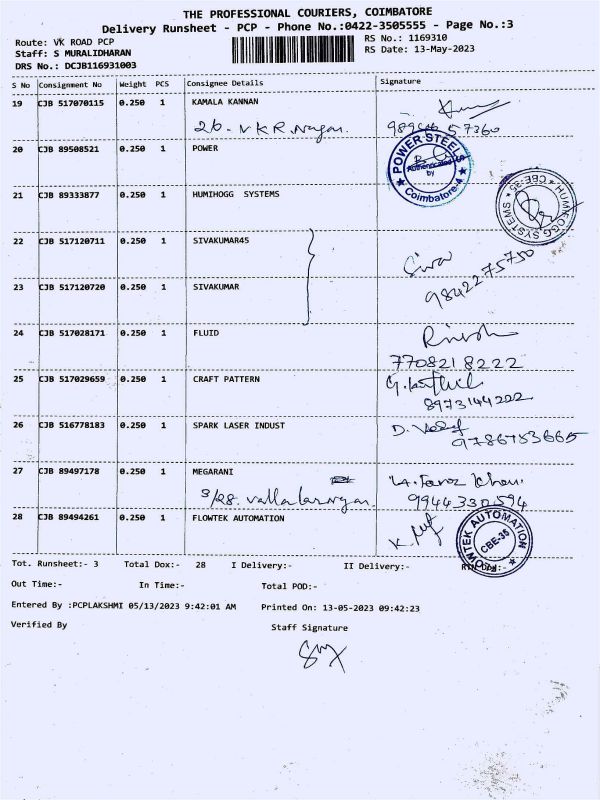 THE PROFESSIONAL COURIERS, COIMBATORE
Delivery Runsheet - PCP - Phone No.:0422-3505555 - Page No.:3
Route: VK ROAD PCP
RS No.: 1169310
Staff: S MURALIDHARAN
RS Date: 13-May-2023
DRS No.: DCJB116931003
S No Consignment No Weight PCS Consignee Details Signature
19 CJB 517070115 0.250 1 KAMALA KANNAN
26- VKR Nagar.
20 CJB 89508521 0.250 1 POWER
POWER STEEL
Authenticated by
Coimbatore-4
21 CJB 89333877 0.250 1 HUMIHOGG SYSTEMS
CBE-35
SYSTEMS
22 CJB 517120711 0.250 1 SIVAKUMAR45
Siva
23 CJB 517120720 0.250 1 SIVAKUMAR
9842275750
24 CJB 517028171 0.250 1 FLUID
7708218222
25 CJB 517029659 0.250 1 CRAFT PATTERN
8973144222
26 CJB 516778183 0.250 1 SPARK LASER INDUST
27 CJB 89497178 0.250 1 MEGARANI
9944330594
28 CJB 89494261 0.250 1 FLOWTEK AUTOMATION
OWTEK AUTOMATION
CBE-35
Tot. Runsheet:- 3 Total Dox:- 28 I Delivery:- II Delivery:-
Out Time:- In Time:- Total POD:-
Entered By :PCPLAKSHMI 05/13/2023 9:42:01 AM Printed On: 13-05-2023 09:42:23
Verified By Staff Signature